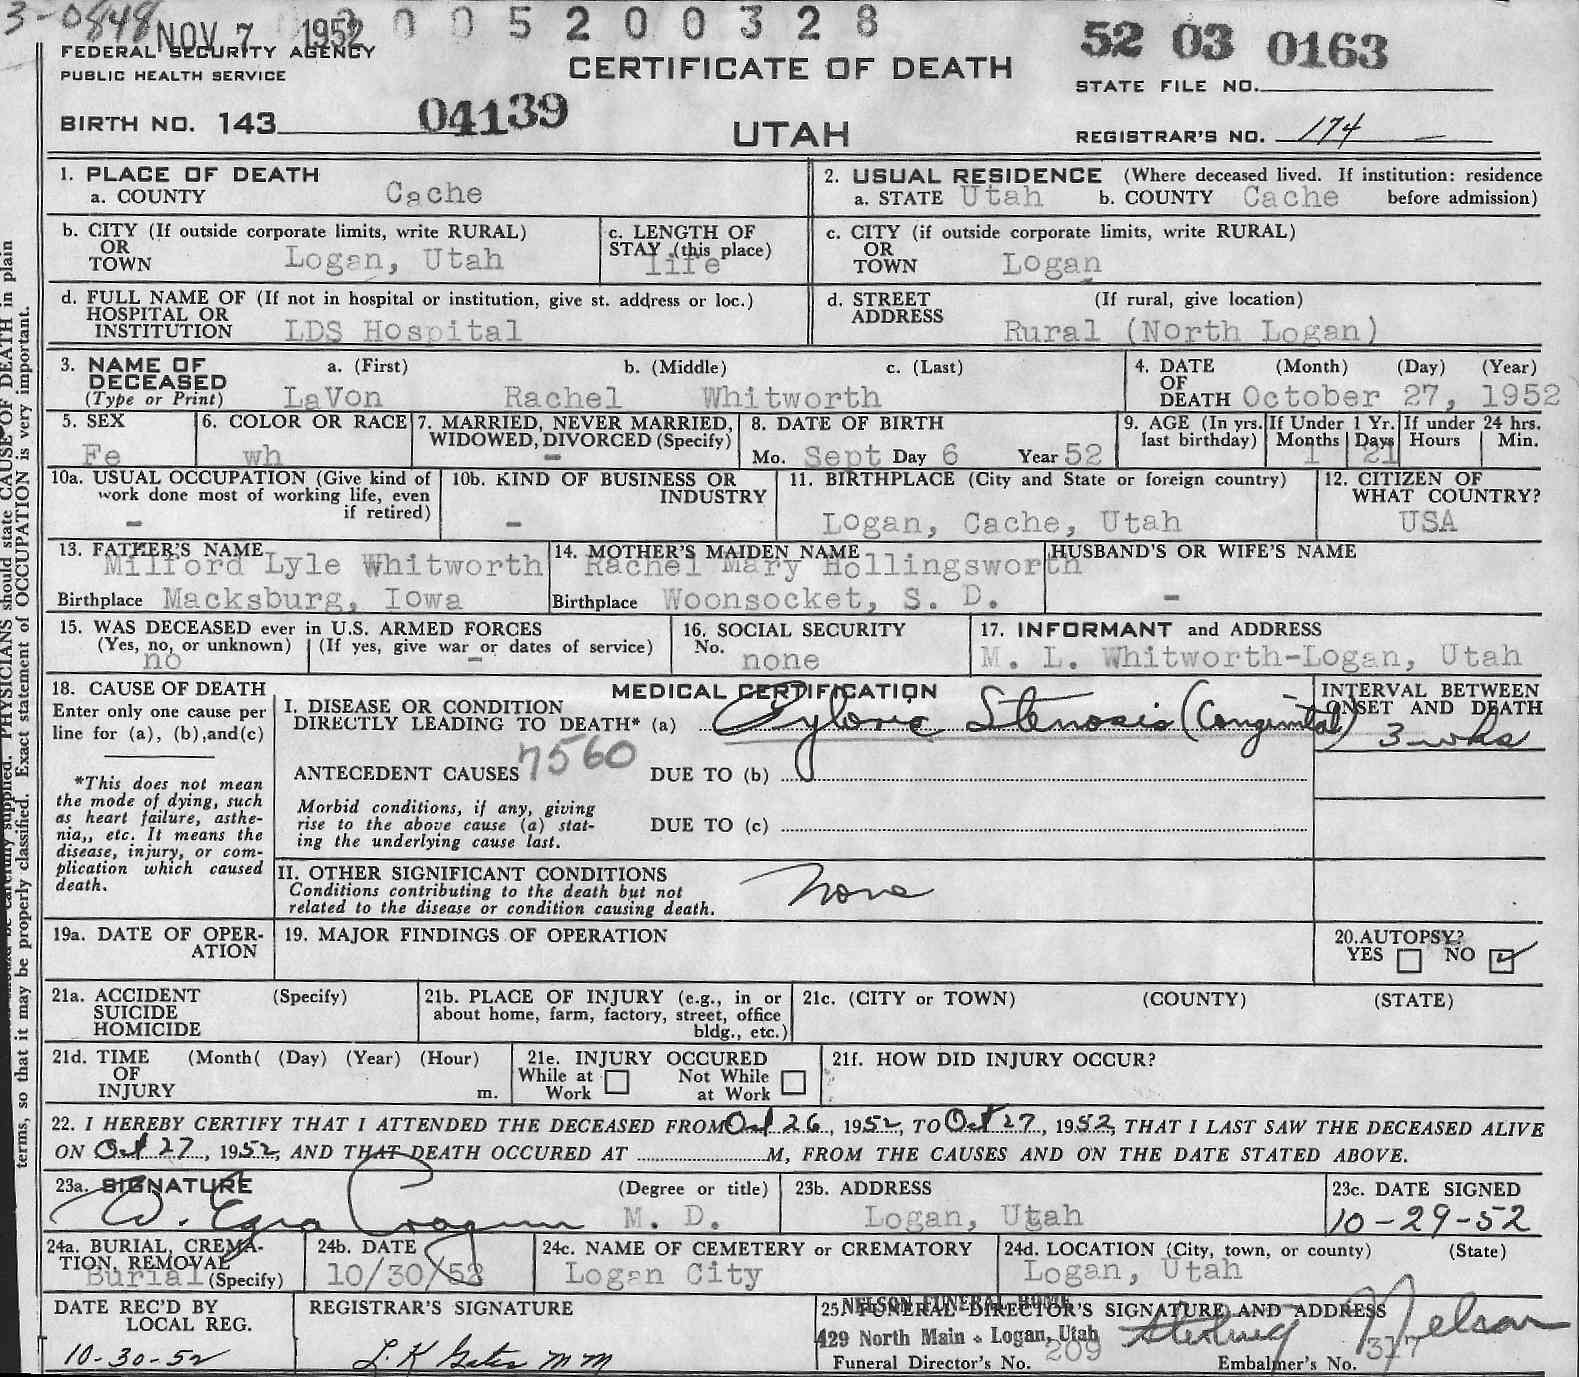 3-0848 NOV 7 1952 0 0 5 2 0 0 3 2 8
FEDERAL SECURITY AGENCY
PUBLIC HEALTH SERVICE
CERTIFICATE OF DEATH
52 03 0163
STATE FILE NO.
BIRTH NO. 143 04139
UTAH
REGISTRAR'S NO. 174
1. PLACE OF DEATH
a. COUNTY Cache
2. USUAL RESIDENCE (Where deceased lived. If institution: residence
a. STATE Utah b. COUNTY Cache before admission)
b. CITY (If outside corporate limits, write RURAL)
OR
TOWN Logan, Utah
c. LENGTH OF
STAY (this place)
life
c. CITY (if outside corporate limits, write RURAL)
OR
TOWN Logan
d. FULL NAME OF (If not in hospital or institution, give st. address or loc.)
HOSPITAL OR
INSTITUTION LDS Hospital
d. STREET (If rural, give location)
ADDRESS Rural (North Logan)
3. NAME OF a. (First) b. (Middle) c. (Last)
DECEASED
(Type or Print) LaVon Rachel Whitworth
4. DATE (Month) (Day) (Year)
OF
DEATH October 27, 1952
5. SEX
Fe
6. COLOR OR RACE
wh
7. MARRIED, NEVER MARRIED,
WIDOWED, DIVORCED (Specify)
-
8. DATE OF BIRTH
Mo. Sept Day 6 Year 52
9. AGE (In yrs. last birthday)
If Under 1 Yr.
Months Days
1 21
If under 24 hrs.
Hours Min.
10a. USUAL OCCUPATION (Give kind of
work done most of working life, even
if retired)
-
10b. KIND OF BUSINESS OR
INDUSTRY
-
11. BIRTHPLACE (City and State or foreign country)
Logan, Cache, Utah
12. CITIZEN OF
WHAT COUNTRY?
USA
13. FATHER'S NAME
Milford Lyle Whitworth
Birthplace Macksburg, Iowa
14. MOTHER'S MAIDEN NAME
Rachel Mary Hollingsworth
Birthplace Woonsocket, S. D.
HUSBAND'S OR WIFE'S NAME
-
15. WAS DECEASED ever in U.S. ARMED FORCES
(Yes, no, or unknown) (If yes, give war or dates of service)
no -
16. SOCIAL SECURITY
No.
none
17. INFORMANT and ADDRESS
M. L. Whitworth-Logan, Utah
18. CAUSE OF DEATH
Enter only one cause per
line for (a), (b),and(c)
*This does not mean
the mode of dying, such
as heart failure, asthe-
nia,, etc. It means the
disease, injury, or com-
plication which caused
death.
MEDICAL CERTIFICATION
I. DISEASE OR CONDITION
DIRECTLY LEADING TO DEATH* (a) Pyloric Stenosis (Congenital)
7560
ANTECEDENT CAUSES DUE TO (b)
Morbid conditions, if any, giving
rise to the above cause (a) stat-
ing the underlying cause last.
DUE TO (c)
INTERVAL BETWEEN
ONSET AND DEATH
3 wks
II. OTHER SIGNIFICANT CONDITIONS
Conditions contributing to the death but not
related to the disease or condition causing death.
None
19a. DATE OF OPER-
ATION
19. MAJOR FINDINGS OF OPERATION
20.AUTOPSY?
YES NO
21a. ACCIDENT (Specify)
SUICIDE
HOMICIDE
21b. PLACE OF INJURY (e.g., in or
about home, farm, factory, street, office
bldg., etc.)
21c. (CITY or TOWN) (COUNTY) (STATE)
21d. TIME (Month( (Day) (Year) (Hour)
OF
INJURY m.
21e. INJURY OCCURED
While at Not While
Work at Work
21f. HOW DID INJURY OCCUR?
22. I HEREBY CERTIFY THAT I ATTENDED THE DECEASED FROM Oct 26, 1952, TO Oct 27, 1952, THAT I LAST SAW THE DECEASED ALIVE
ON Oct 27, 1952, AND THAT DEATH OCCURED AT M, FROM THE CAUSES AND ON THE DATE STATED ABOVE.
23a. SIGNATURE (Degree or title)
W. Ezra Cragun M. D.
23b. ADDRESS
Logan, Utah
23c. DATE SIGNED
10-29-52
24a. BURIAL, CREMA-
TION, REMOVAL
Burial (Specify)
24b. DATE
10/30/52
24c. NAME OF CEMETERY or CREMATORY
Logan City
24d. LOCATION (City, town, or county) (State)
Logan, Utah
DATE REC'D BY
LOCAL REG.
10-30-52
REGISTRAR'S SIGNATURE
25. FUNERAL DIRECTOR'S SIGNATURE AND ADDRESS
NELSON FUNERAL HOME
429 North Main Logan, Utah Sterling Nelson
Funeral Director's No. 209 Embalmer's No. 317
PHYSICIANS should state CAUSE OF DEATH in plain
terms, so that it may be properly classified. Exact statement of OCCUPATION is very important.